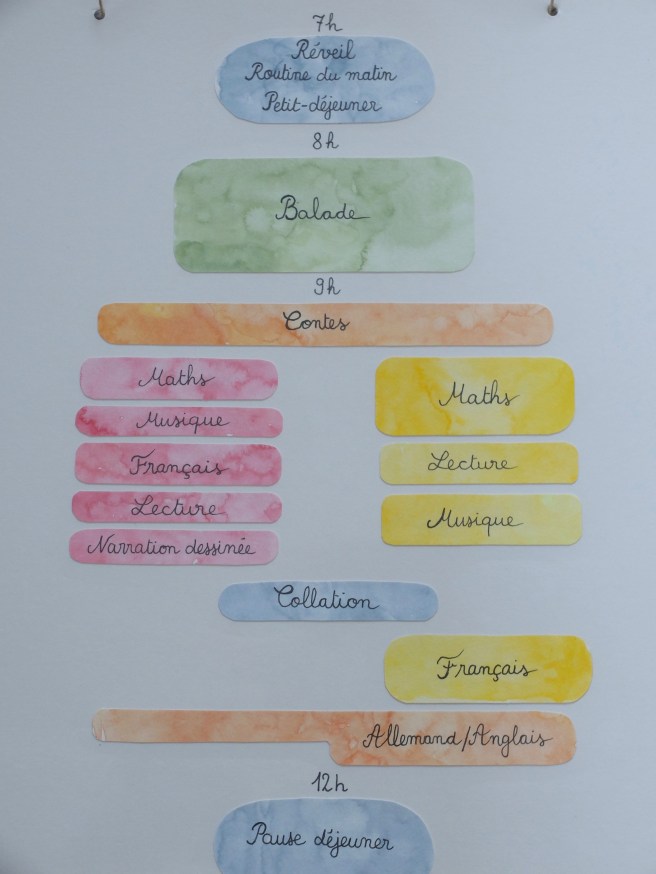 7h
Réveil
Routine du matin
Petit-déjeuner
8h
Balade
9h
Contes
Maths
Musique
Français
Lecture
Narration dessinée
Maths
Lecture
Musique
Collation
Français
Allemand/Anglais
12h
Pause déjeuner